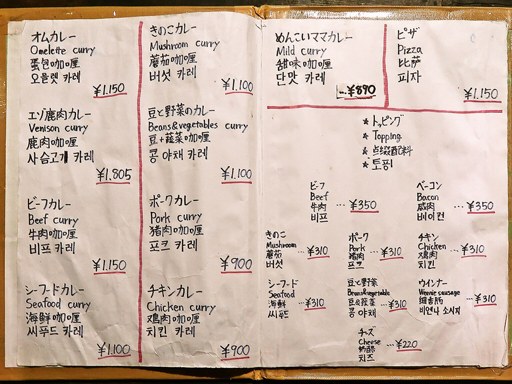 オムカレー
Omelette curry
蛋包咖喱
오믈렛 카레
¥1.150
きのこカレー
Mushroom curry
蘑菇咖喱
버섯 카레
¥1,100
エゾ鹿肉カレー
Venison curry
鹿肉咖喱
사슴고기 카레
¥1.805
豆と野菜のカレー
Beans&vegetables curry
豆+蔬菜咖喱
콩 야채 카레
¥1.100
ビーフカレー
Beef curry
牛肉咖喱
비프 카레
¥1.150
ポークカレー
Pork curry
猪肉咖喱
포크 카레
¥900
シーフードカレー
Seafood curry
海鲜咖喱
씨푸드 카레
¥1.100
チキンカレー
Chicken curry
鸡肉咖喱
치킨 카레
¥900
めんこいママカレー
Mild curry
甜味咖喱
단맛 카레
...¥890
ピザ
Pizza
比萨
피자
¥1.150
★ トッピング
★ Topping
★ 点缀配料
★ 토핑
ビーフ
Beef
牛肉
비프
...¥350
ベーコン
Bacon
咸肉
베이컨
...¥350
きのこ
Mushroom
蘑菇
버섯
...¥310
ポーク
Pork
猪肉
포크
...¥310
チキン
Chicken
鸡肉
치킨
...¥310
シーフード
Seafood
海鲜
씨푸드
...¥310
豆と野菜
Beans&vegetable
豆&蔬菜
콩 야채
...¥310
ウインナー
Wiennie sausage
细香肠
비엔나 소시지
...¥310
チーズ
Cheese
奶酪
치즈
...¥220